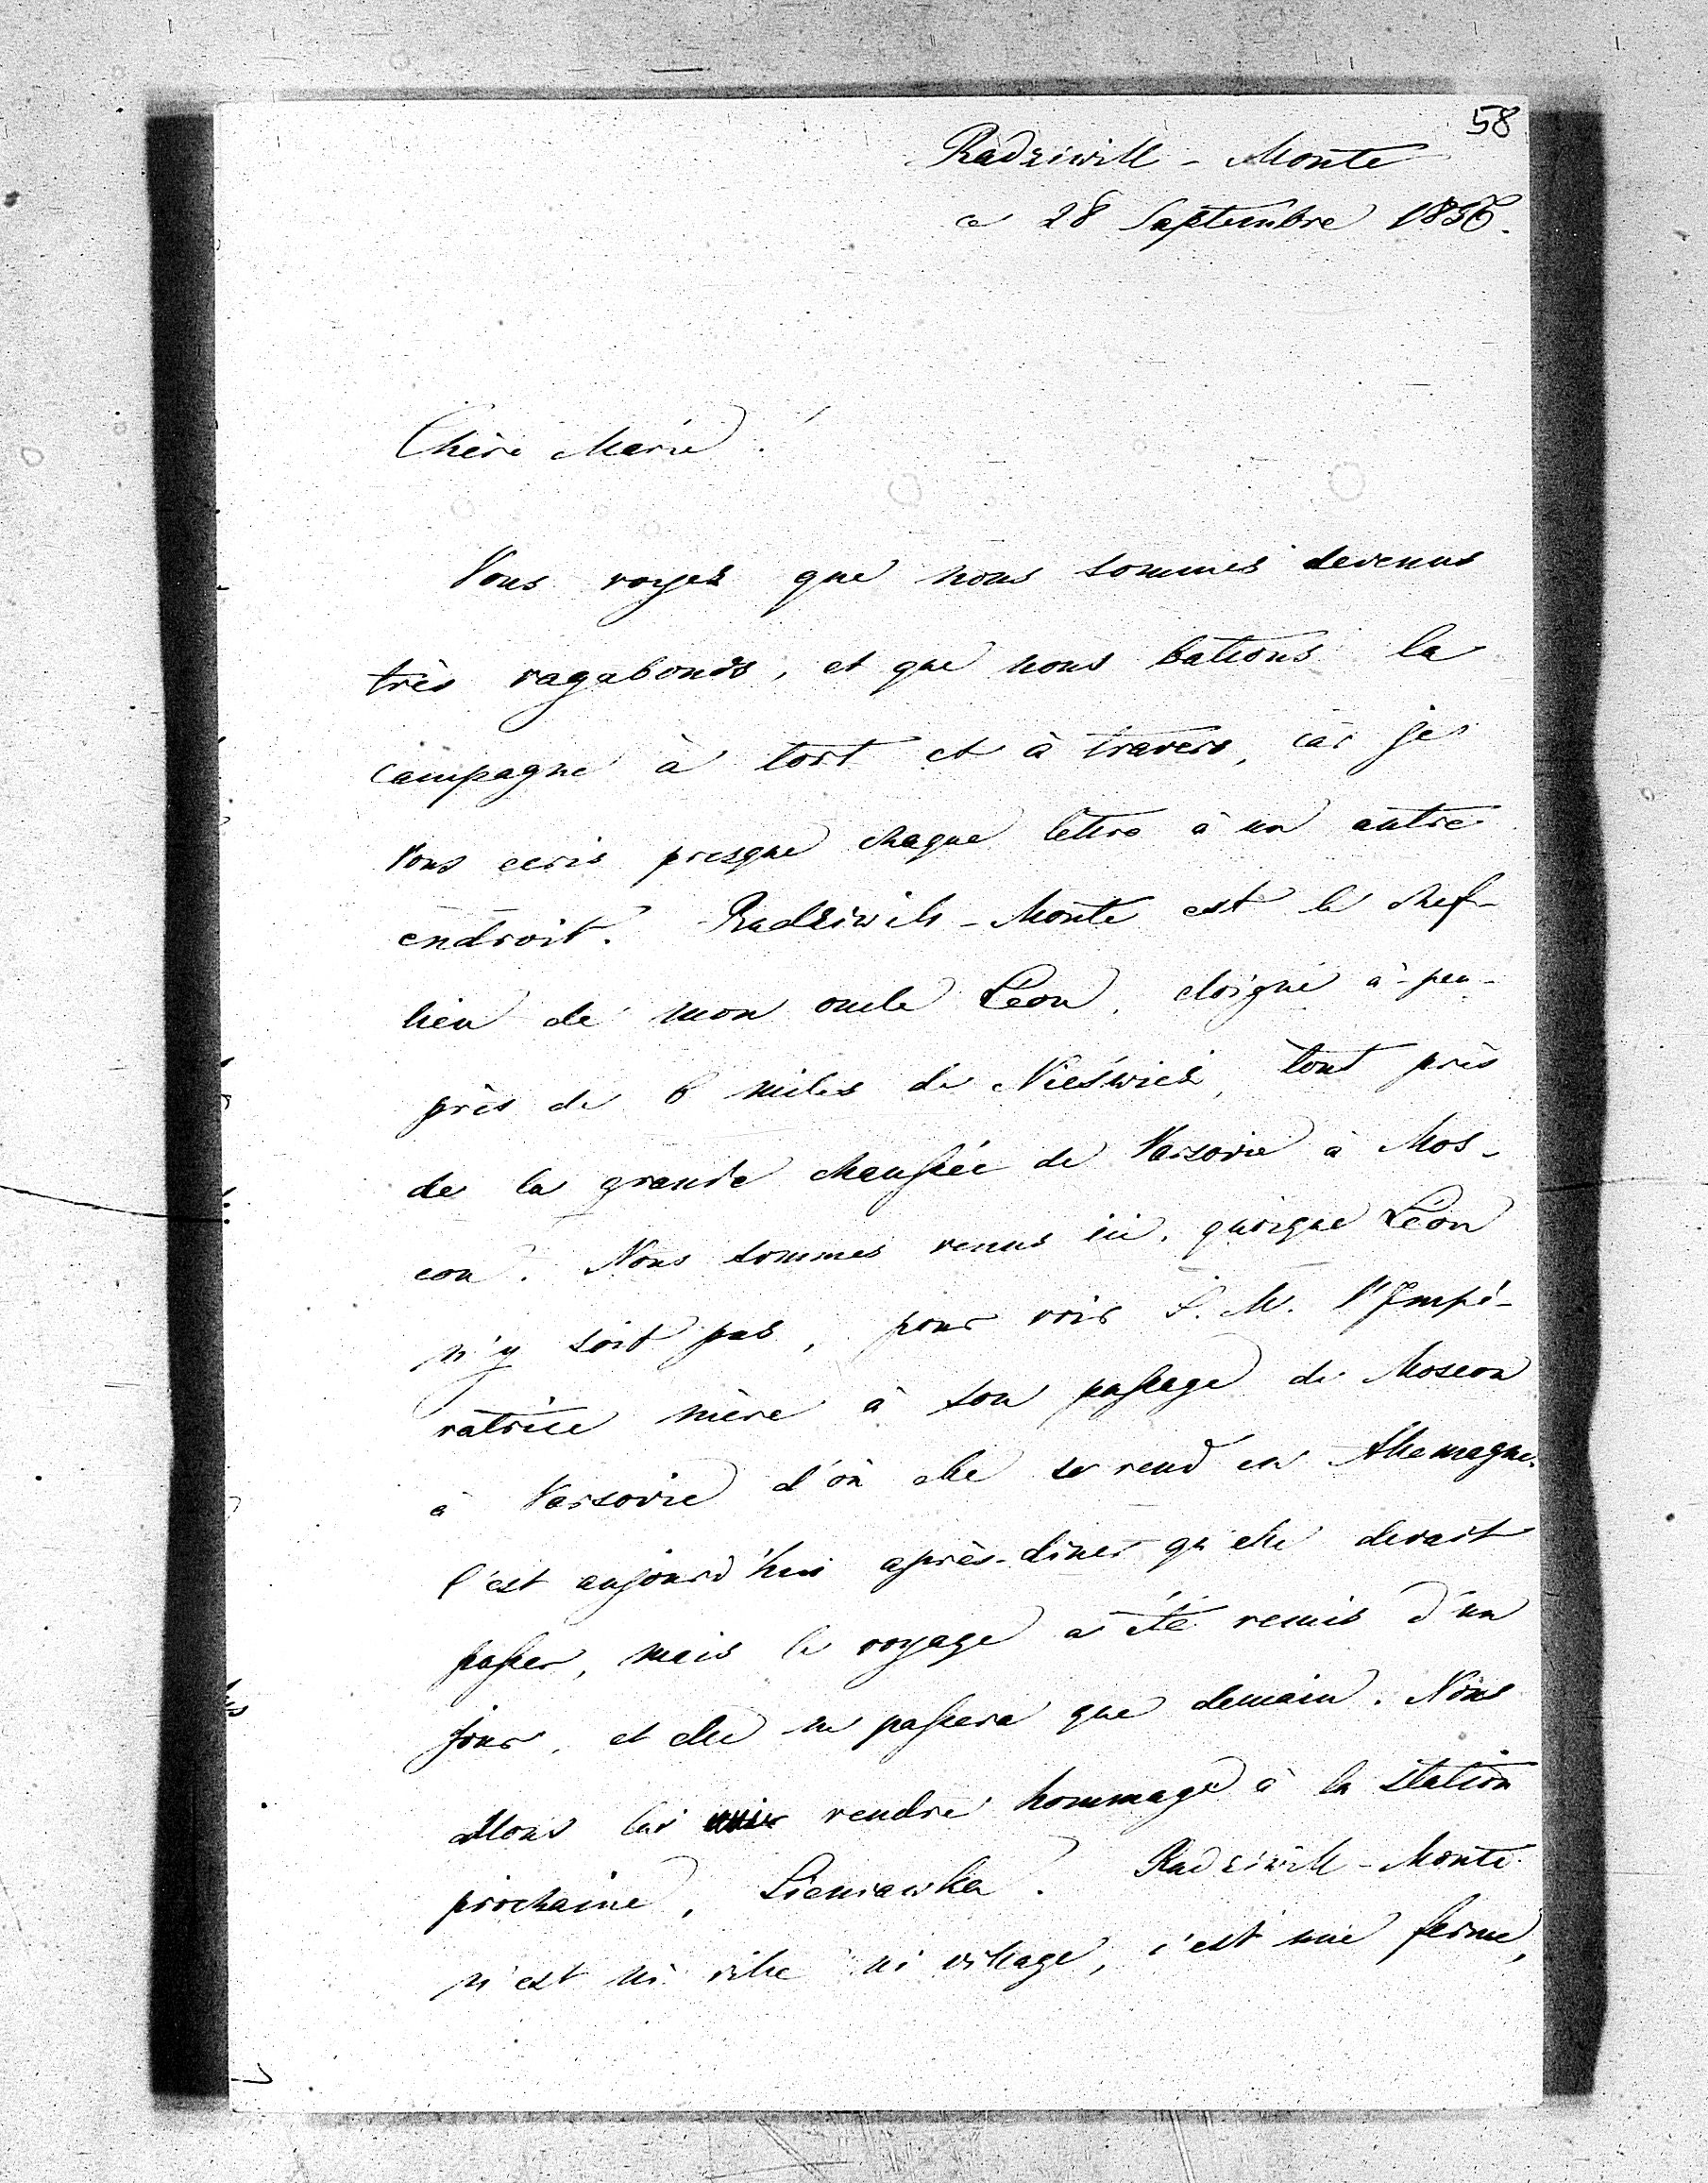 58
Radziwill - Monte
ce 28 Septembre 1856.
Chère Marie!
Vous voyez que nous sommes devenus
très vagabonds, et que nous bations la
campagne à tort et à travers, car je
Vous ecris presque chaque lettre à un autre
endroit. Radziwill - Monte est le chef-
lieu de mon oncle Léon, eloigné à-peu-
près de 6 miles de Nieświez, tout près
de la grande chaussée de Varsovie à Mos-
cou. Nous sommes venus ici, quoique Léon
n'y soit pas, pour voir S. M. l'Impé-
ratrice mère à son passage de Moscou
à Varsovie d'où elle se rend en Allemagne.
C'est aujourd'hui après-diner qu'elle devait
passer, mais le voyage a été remis d'un
jour, et elle ne passera que demain. Nous
allons lui rendre hommage à la station
prochaine, Sieniawka. Radziwill - Monte
n'est ni ville ni village, c'est une ferme,